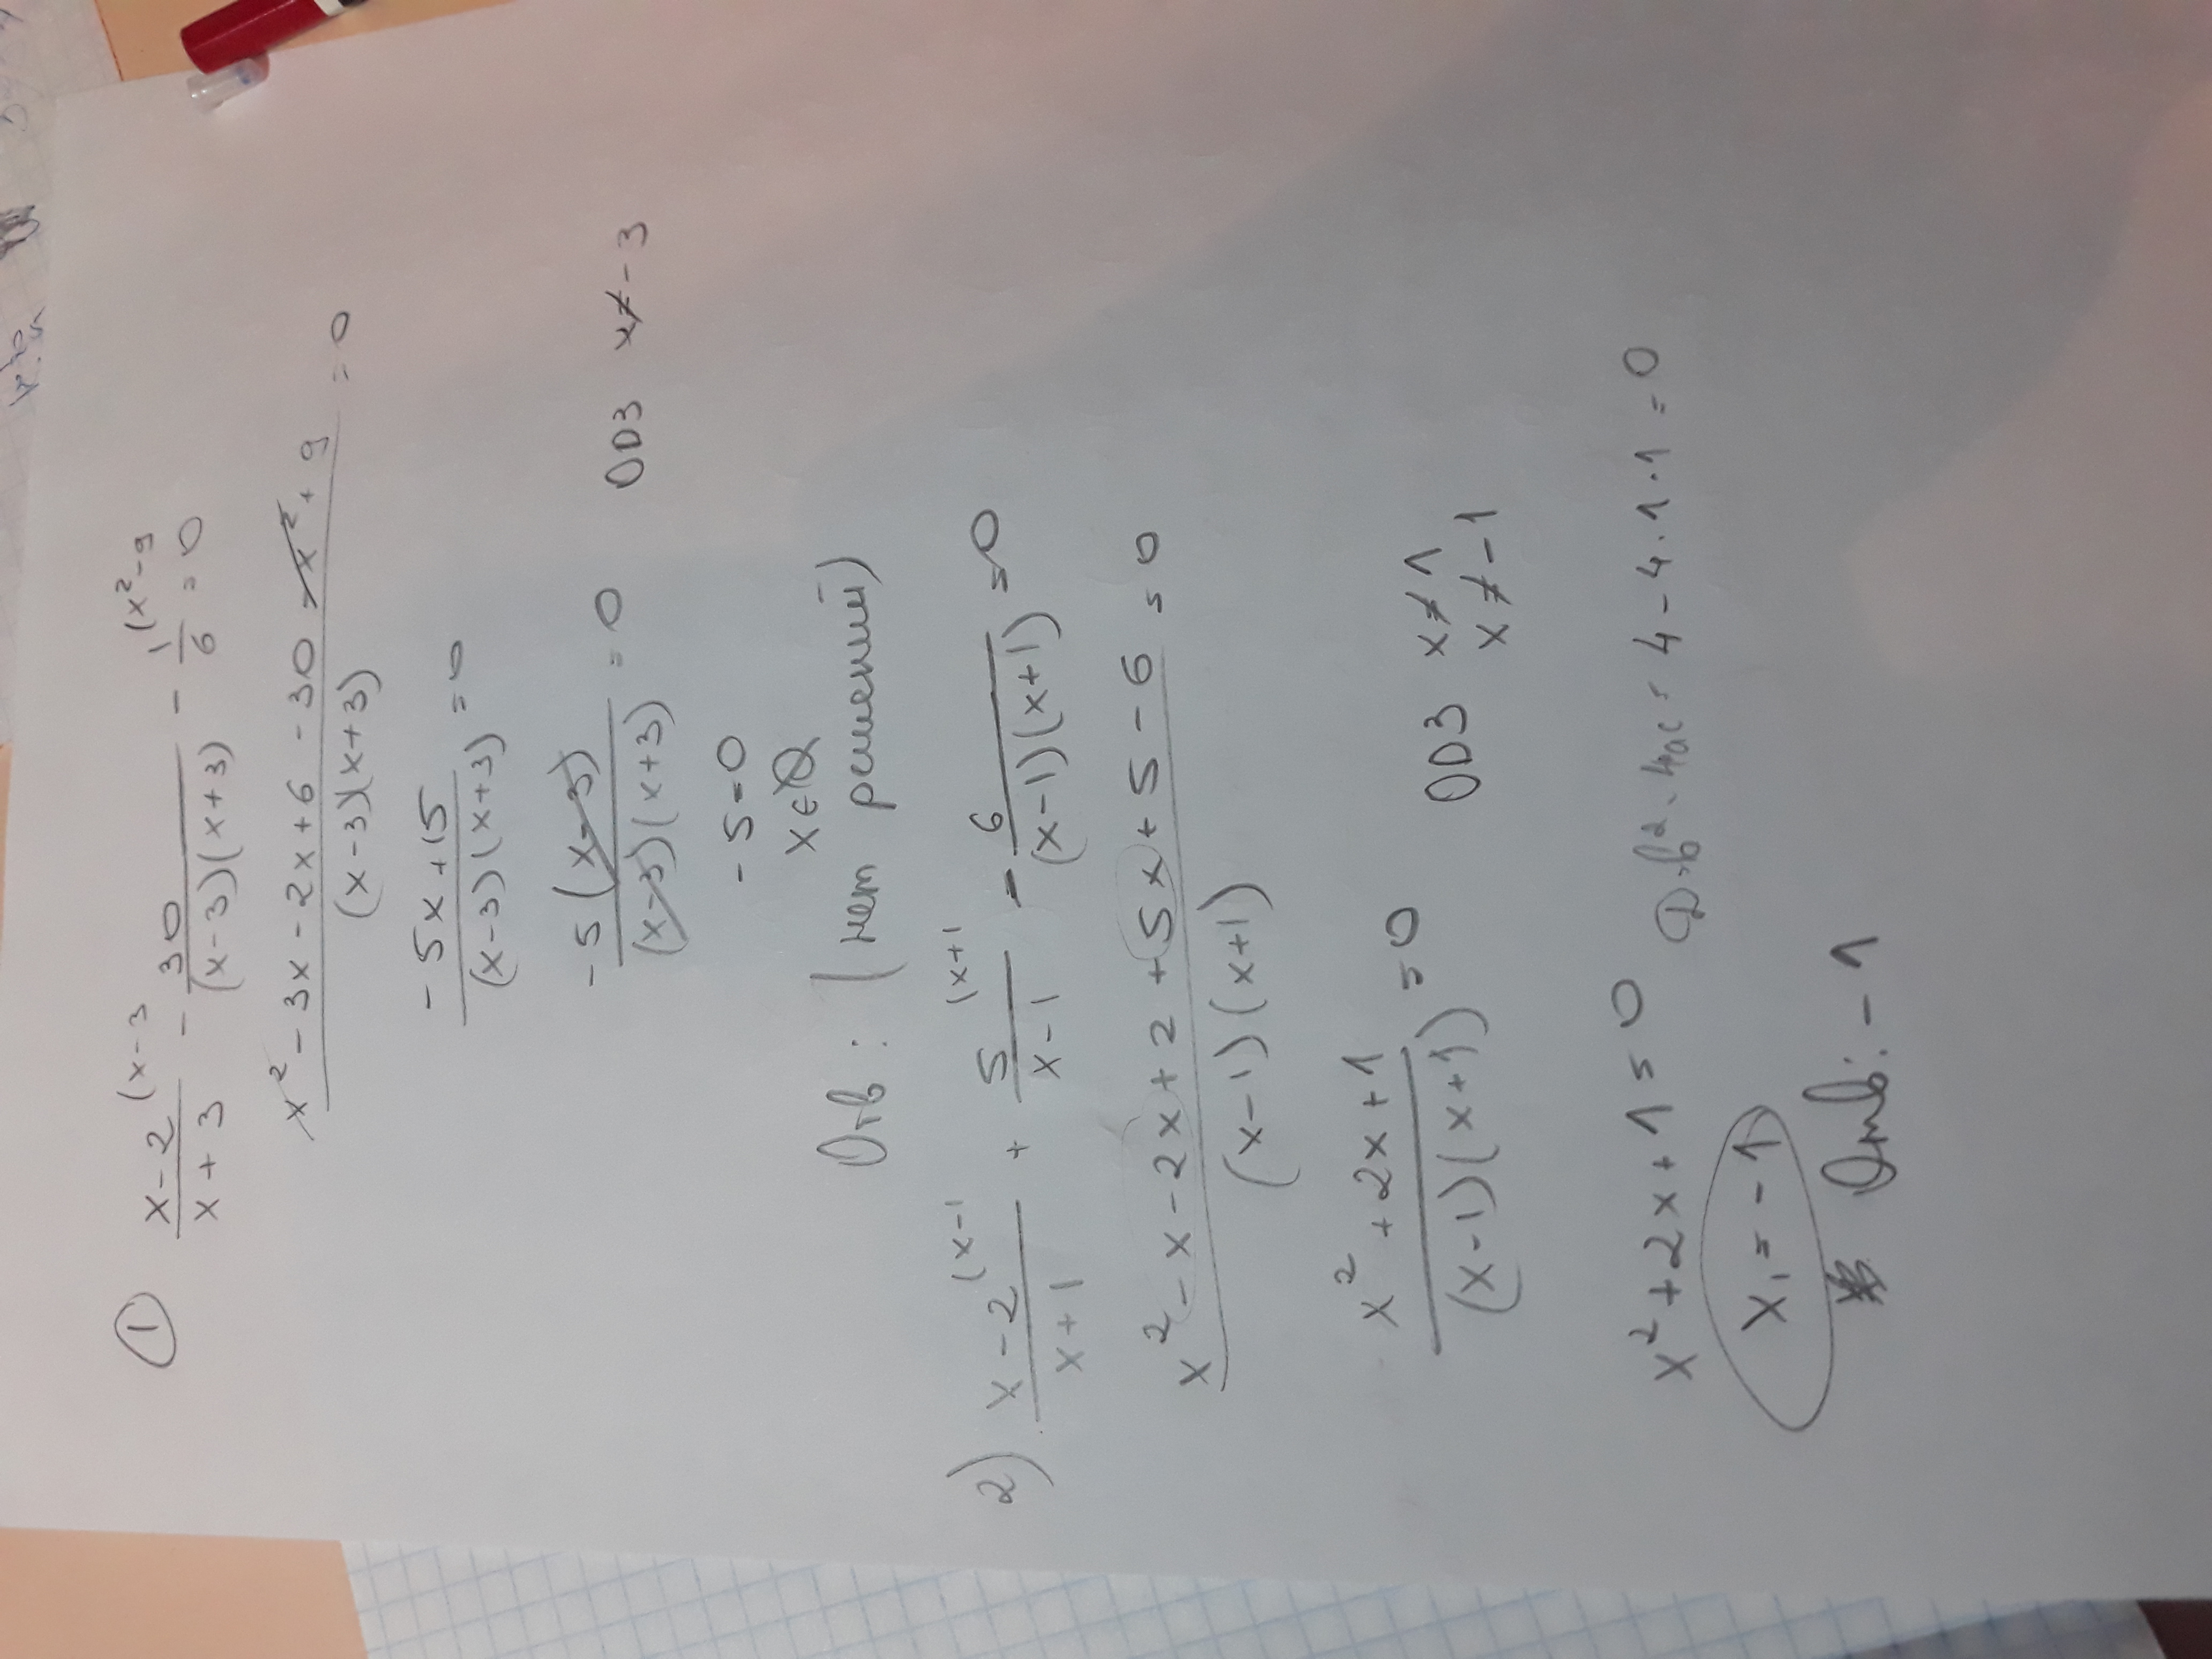 ① x-2/x+3 (x-3 - 30/(x-3)(x+3) - 1/6 (x²-9 = 0
x² - 3x - 2x + 6 - 30 - x² + 9 / (x-3)(x+3) = 0
-5x + 15 / (x-3)(x+3) = 0
-5(x-3) / (x-3)(x+3) = 0 ОДЗ x≠-3
-5=0
x∈∅
Отв: (нет решений)
2) x-2/x+1 (x-1 + 5/x-1 (x+1 - 6/(x-1)(x+1) = 0
x² - x - 2x + 2 + 5x + 5 - 6 / (x-1)(x+1) = 0
x² + 2x + 1 / (x-1)(x+1) = 0 ОДЗ x≠1
x≠-1
x² + 2x + 1 = 0 D=b²-4ac = 4-4·1·1=0
x₁ = -1
Отв: -1